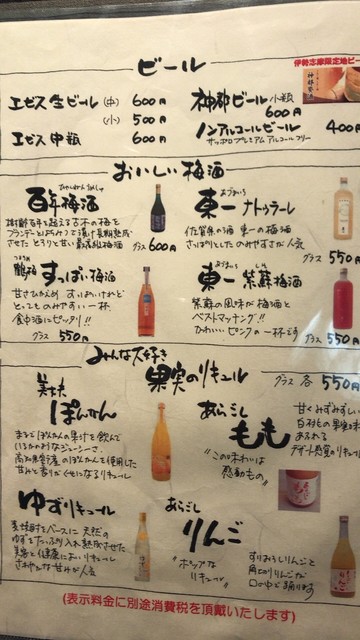 ビール
伊勢志摩限定地ビー
エビス生ビール (中) 600円
(小) 500円
エビス中瓶 600円
神都ビール 小瓶
600円
ノンアルコールビール 400円
サッポロプレミアムアルコールフリー
おいしい梅酒
百年梅酒
樹齢百年を超える古木の梅を
ブランデーとはちみつで漬け長期熟成
させた とろりと甘い最高級梅酒
グラス 600円
東一 ナトゥラーレ
佐賀県の酒 東一の梅酒
さっぱりとしたのみやすさが人気
グラス 550円
鶴梅 すっぱい梅酒
甘さひかえめ すっぱいけれど
とってものみやすい一杯
食中酒にピッタリ!!
グラス 550円
東一 紫蘇梅酒
紫蘇の風味が梅酒と
ベストマッチング!!
かわいいピンクの一杯です
グラス 550円
みんな大好き
果実のリキュール
グラス 各 550円
美丈夫 ぽんかん
まるでぽんかんの果汁を飲んで
いるかのようなジューシーさ。
高知県産のぽんかんを使用した
甘みと香りがくせになるリキュール
あらごし もも
"この味わいは
感動もの"
甘くみずみずしい
白桃の果実味
あふれる
デザート感覚のリキュー
ゆずリキュール
天然の
ゆずをたっぷり入れ熟成させた
美容と健康においいリキュール
さわやかな甘みが人気
あらごし りんご
"ホップな
リキュール"
すりおろしりんごと
角切りりんごが
口の中で踊ります
(表示料金に別途消費税を頂戴いたします)